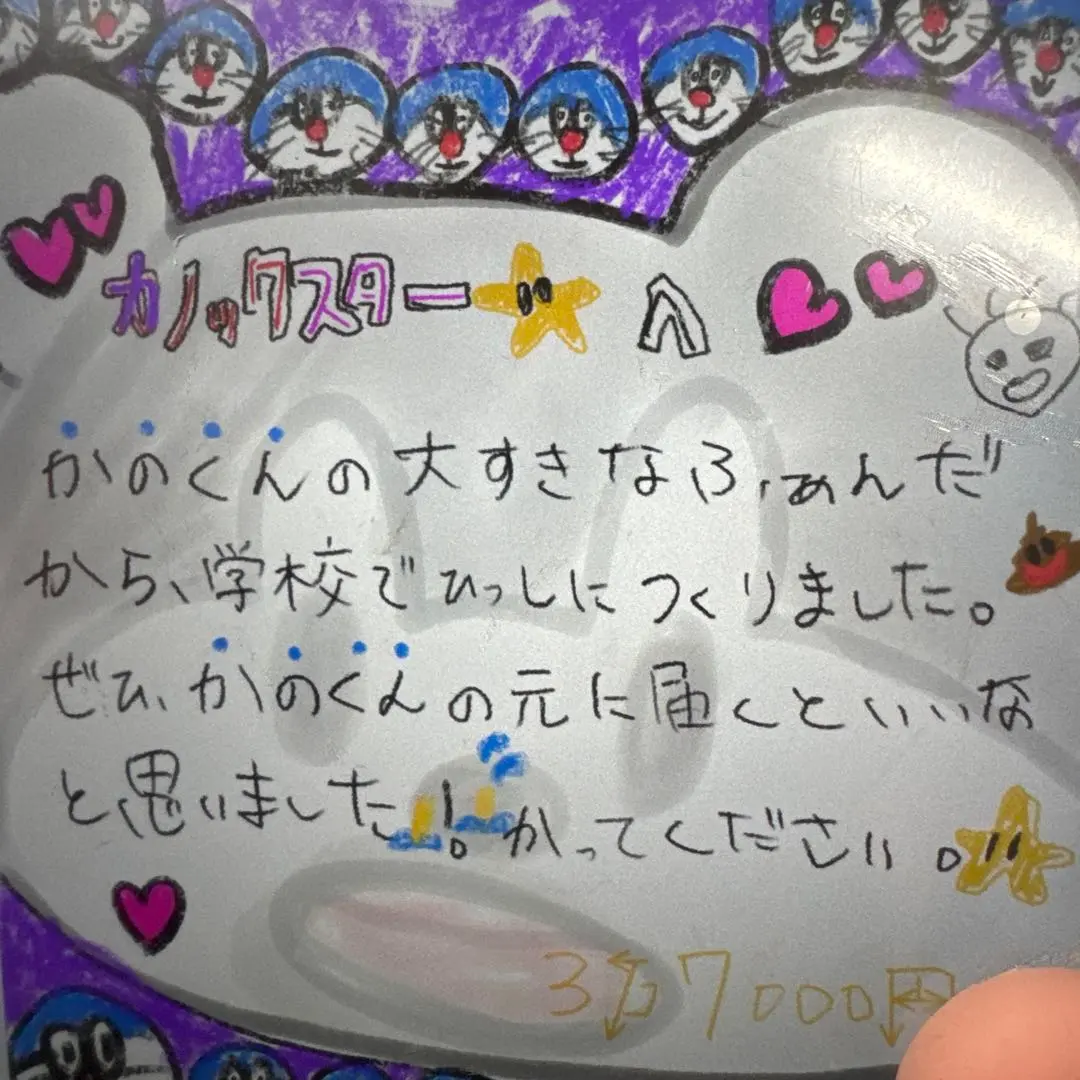 カノックスターへ
かのくんの大すきなふぁんだ
から、学校でひっしにつくりました。
ぜひ、かのくんの元に届くといいな
と思いました!かってください。
3万7000円